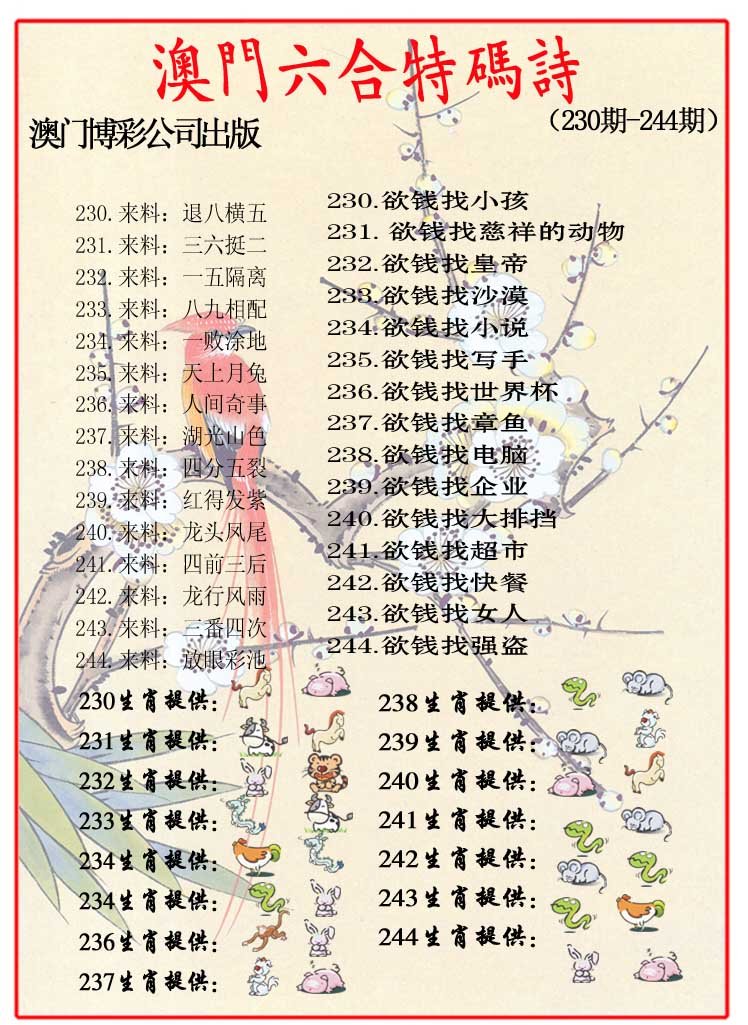 澳門六合特碼詩
澳门博彩公司出版
（230期-244期）
230.来料：退八横五
231.来料：三六挺二
232.来料：一五隔离
233.来料：八九相配
234.来料：一败涂地
235.来料：天上月兔
236.来料：人间奇事
237.来料：湖光山色
238.来料：四分五裂
239.来料：红得发紫
240.来料：龙头风尾
241.来料：四前三后
242.来料：龙行风雨
243.来料：三番四次
244.来料：放眼彩池
230.欲钱找小孩
231. 欲钱找慈祥的动物
232.欲钱找皇帝
233.欲钱找沙漠
234.欲钱找小说
235.欲钱找写手
236.欲钱找世界杯
237.欲钱找章鱼
238.欲钱找电脑
239.欲钱找企业
240.欲钱找大排挡
241.欲钱找超市
242.欲钱找快餐
243.欲钱找女人
244.欲钱找强盗
230生肖提供：
231生肖提供：
232生肖提供：
233生肖提供：
234生肖提供：
234生肖提供：
236生肖提供：
237生肖提供：
238生肖提供：
239生肖提供：
240生肖提供：
241生肖提供：
242生肖提供：
243生肖提供：
244生肖提供：